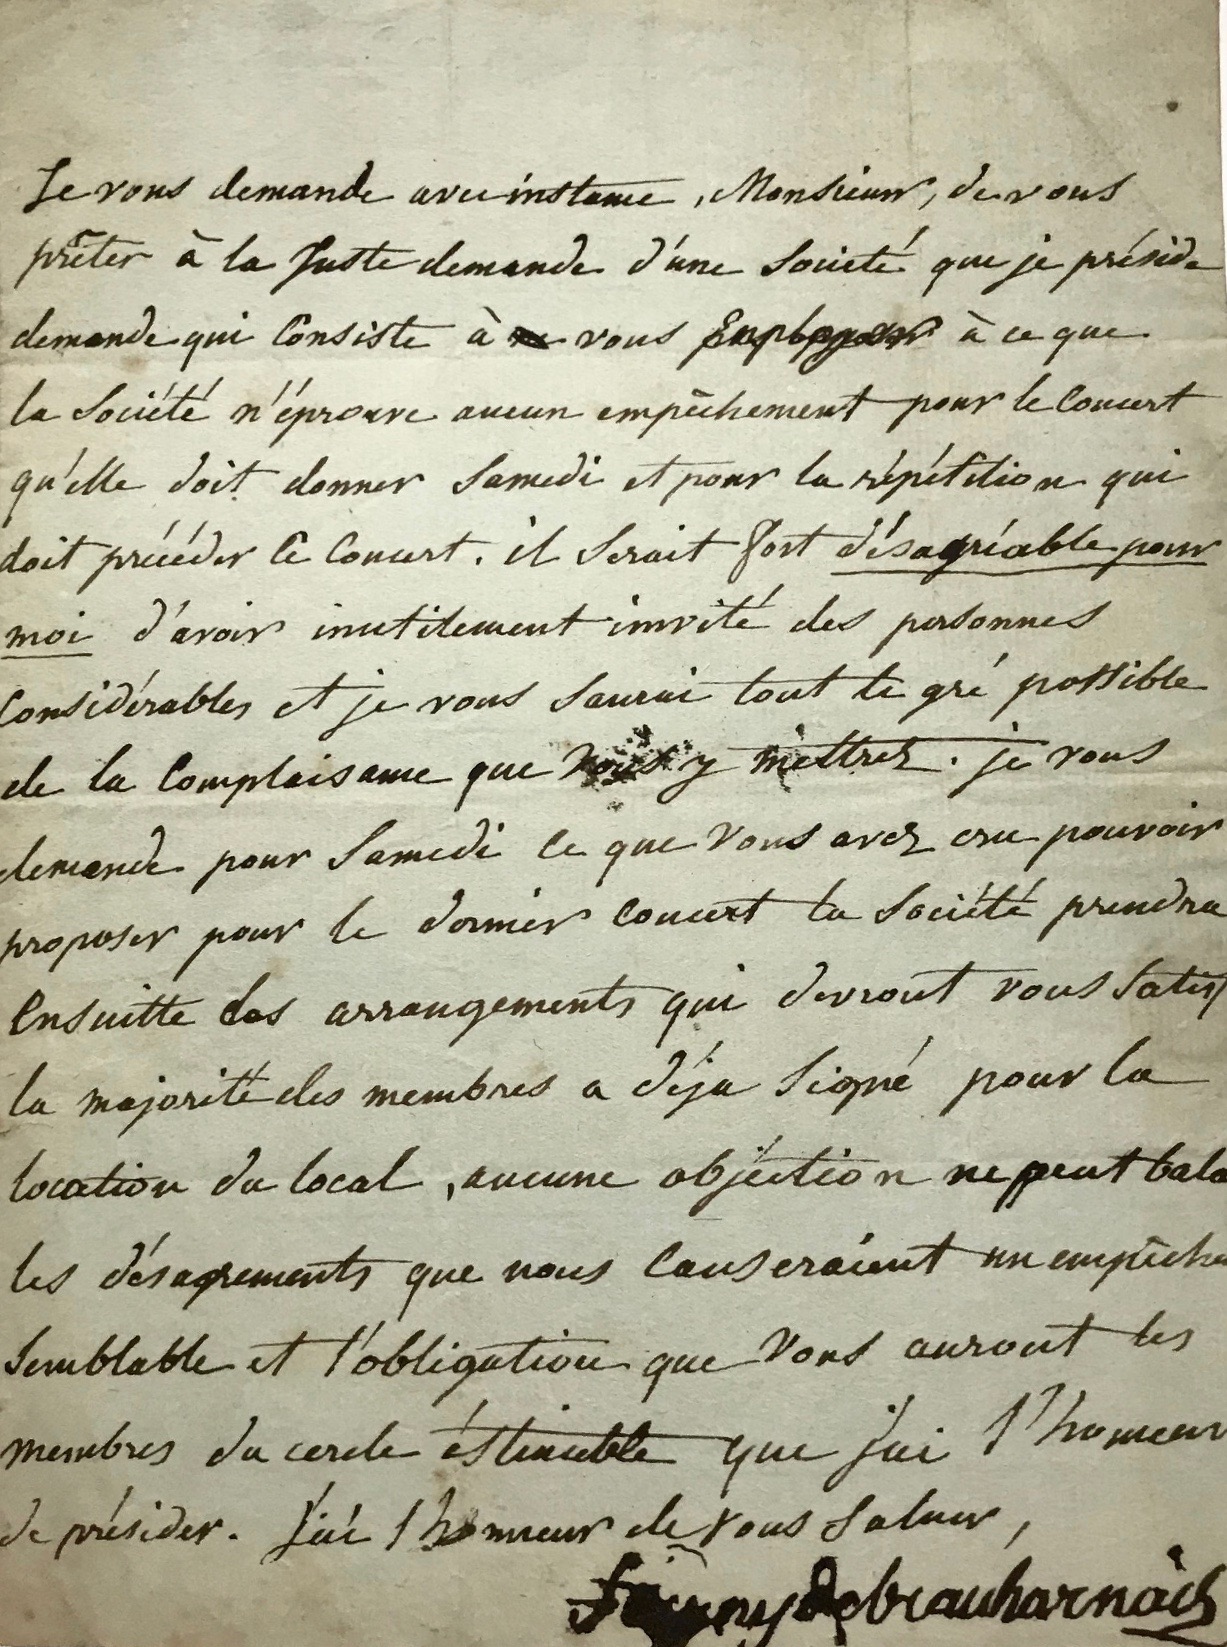 Je vous demande avec instance, Monsieur, de vous
prêter à la Juste demande d'une Société que je préside
demande qui Consiste à vous Employer à ce que
la Société n'éprouve aucun empêchement pour le Concert
qu'elle doit donner Samedi et pour la répétition qui
doit précéder Ce Concert. il Serait fort désagréable pour
moi d'avoir inutilement invité des personnes
Considérables et je vous Saurai tout le gré possible
de la Complaisance que vous y mettrez. je vous
demande pour Samedi Ce que Vous avez cru pouvoir
proposer pour le dernier Concert la Société prendra
Ensuitte des arrangements qui devront vous Satisf
la majorité des membres a déja Signé pour la
location du local, aucune objéction ne peut bala
les désagrements que nous Causeraient un empêche
Semblable et l'obligation que Vous auront les
membres du cercle éstimable que j'ai l'honneur
de présider. J'ai l'honneur de vous Saluer,
Fanny de beauharnais